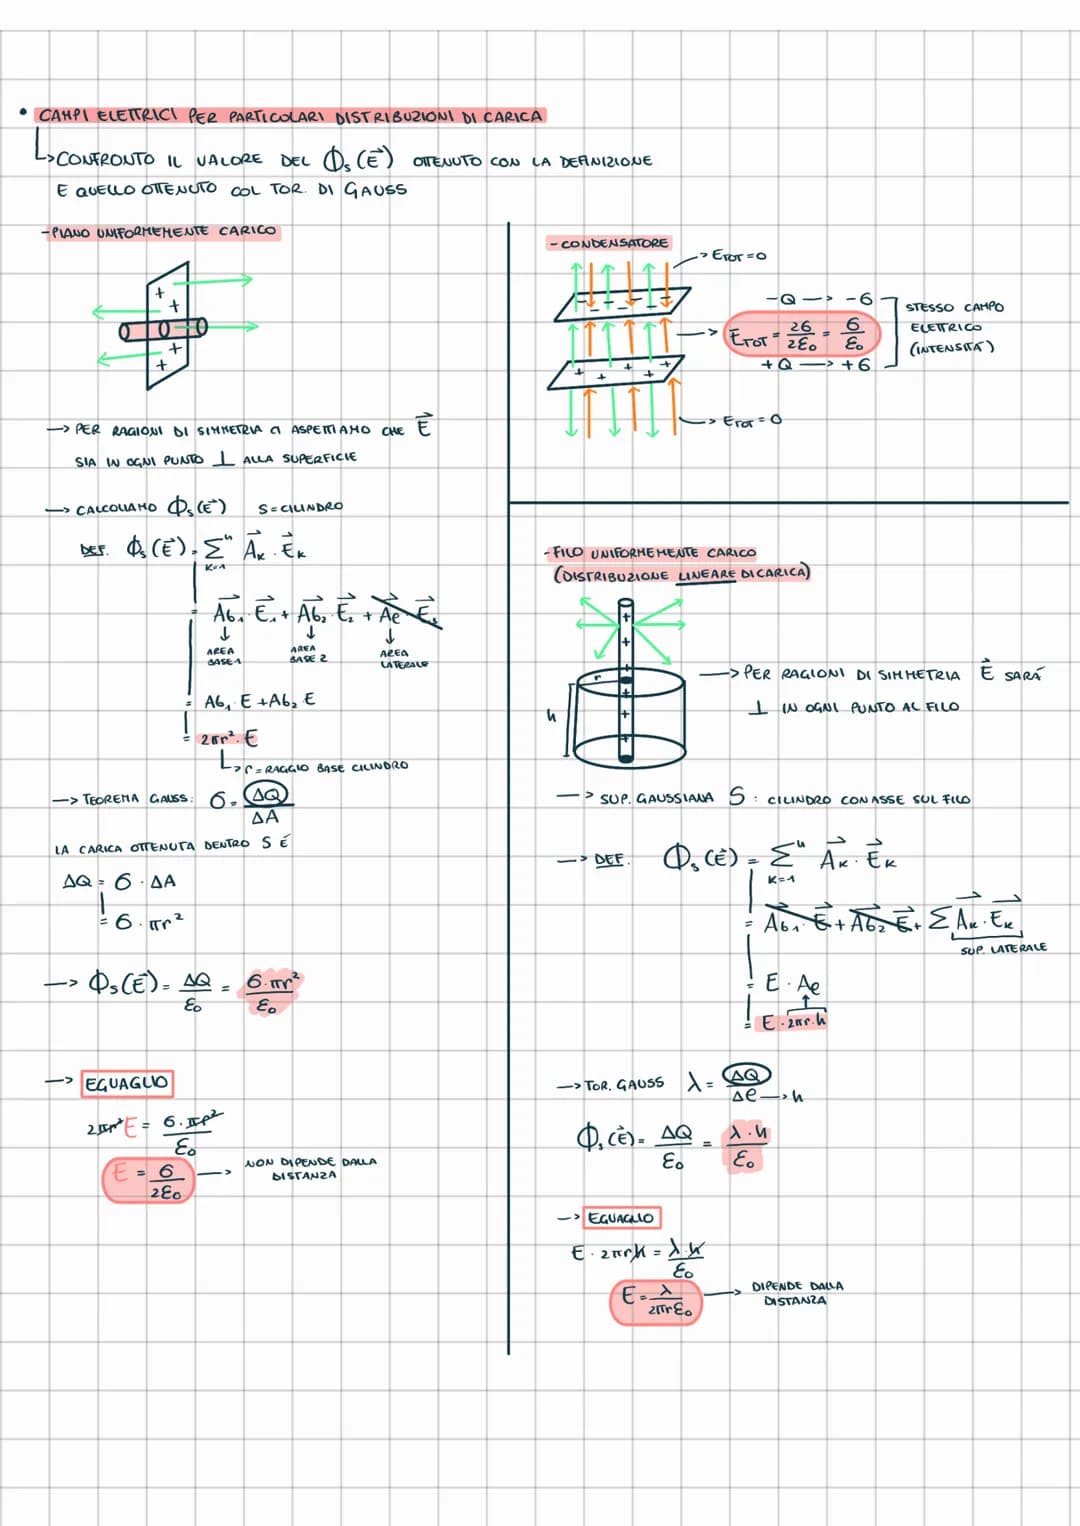 • CAMPI ELETTRICI PER PARTICOLARI DISTRIBUZIONI DI CARICA
↳ CONFRONTO IL VALORE DEL Φₛ(E⃗) OTTENUTO CON LA DEFINIZIONE
E QUELLO OTTENUTO COL TOR. DI GAUSS
- PIANO UNIFORMEMENTE CARICO
+
+
+
+
-> PER RAGIONI DI SIMMETRIA CI ASPETTIAMO CHE E⃗
SIA IN OGNI PUNTO ⊥ ALLA SUPERFICIE
-> CALCOLIAMO Φₛ(E⃗) S = CILINDRO
DEF. Φₛ(E⃗) = Σⁿ A⃗ₖ · E⃗ₖ
K=1
= A⃗b₁ · E⃗₁ + A⃗b₂ · E⃗₂ + A⃗e · E⃗₃
↓ ↓ ↓
AREA BASE 1
AREA BASE 2
AREA LATERALE
= Ab₁ · E + Ab₂ E
= 2πr² · E
↳ r = RAGGIO BASE CILINDRO
-> TEOREMA GAUSS: σ = ΔQ / ΔA
LA CARICA OTTENUTA DENTRO S É
ΔQ = σ · ΔA
= σ · πr²
-> Φₛ(E⃗) = ΔQ / ε₀ = σ · πr² / ε₀
-> EGUAGLIO
2πr² E = σ · πr² / ε₀
E = σ / 2ε₀ -> NON DIPENDE DALLA
DISTANZA
- CONDENSATORE
-> ETOT = 0
-Q -> -σ
-> ETOT = 2σ / 2ε₀ = σ / ε₀
+Q -> +σ
STESSO CAMPO
ELETTRICO
(INTENSITÀ)
-> ETOT = 0
- FILO UNIFORMEMENTE CARICO
(DISTRIBUZIONE LINEARE DI CARICA)
r
h
-> PER RAGIONI DI SIMMETRIA E⃗ SARÁ
⊥ IN OGNI PUNTO AL FILO
-> SUP. GAUSSIANA S : CILINDRO CON ASSE SUL FILO
-> DEF. Φₛ(E⃗) = Σⁿ A⃗ₖ · E⃗ₖ
K=1
= A⃗b₁ · E⃗ + A⃗b₂ · E⃗ + Σ A⃗ₖ · E⃗ₖ
SUP. LATERALE
= E · Ae
= E · 2πr · h
-> TOR. GAUSS λ = ΔQ / Δe -> h
Φₛ(E⃗) = ΔQ / ε₀ = λ · h / ε₀
-> EGUAGLIO
E · 2πrh = λ · h / ε₀
E = λ / 2πrε₀ -> DIPENDE DALLA
DISTANZA